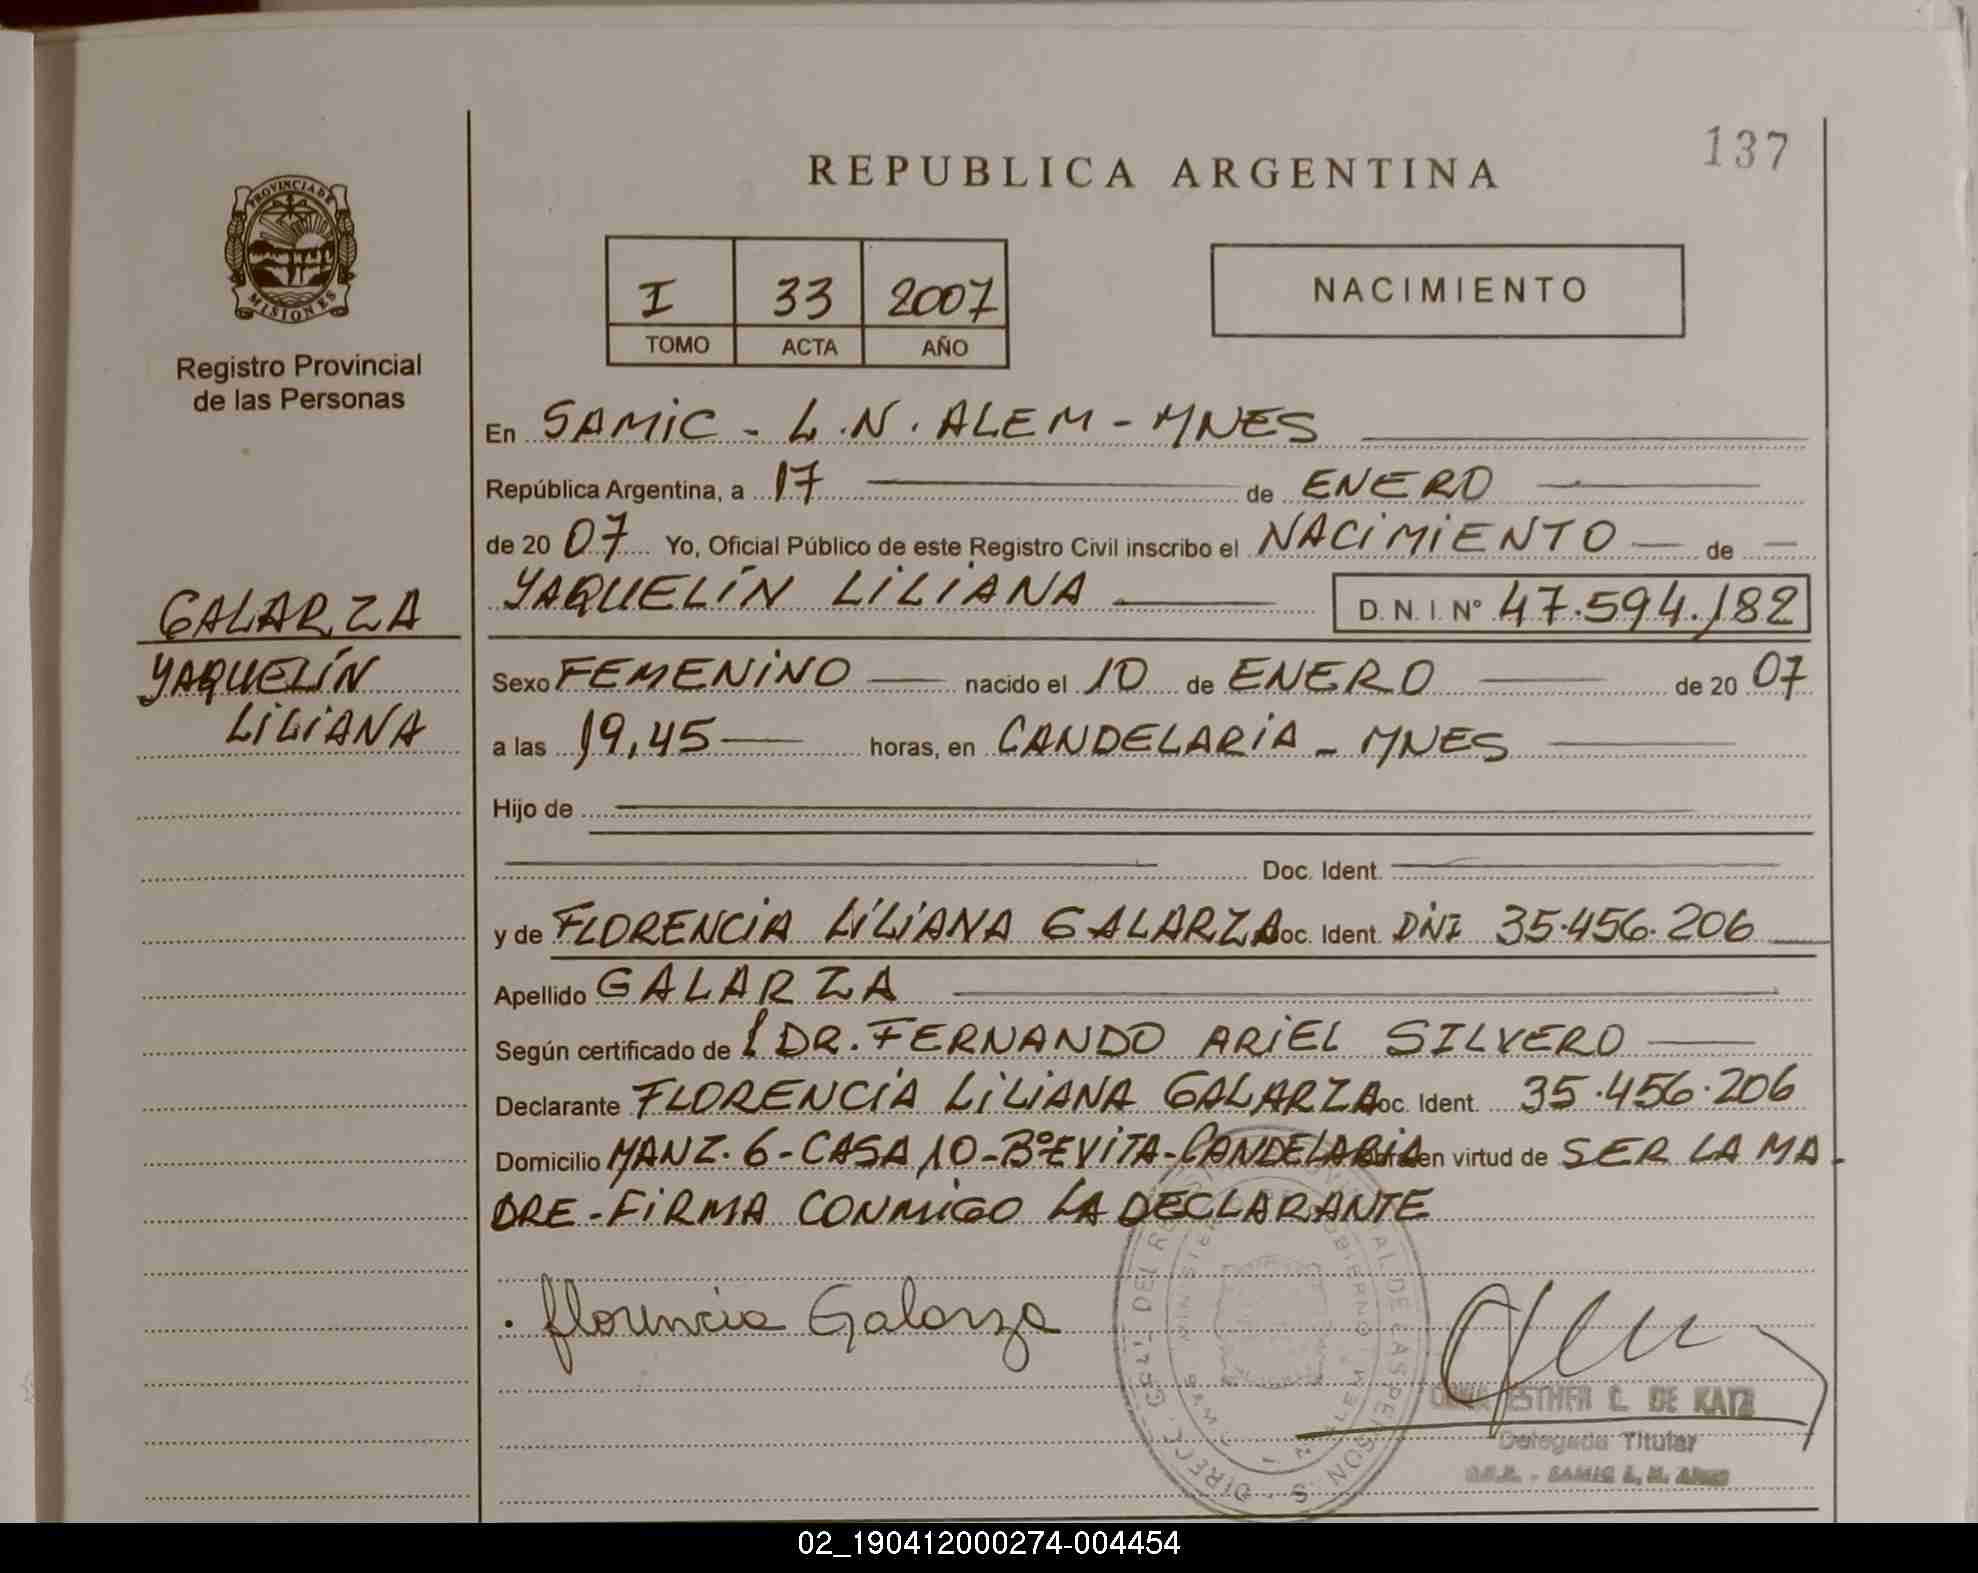 137
REPUBLICA ARGENTINA
PROVINCIA DE
MISIONES
Registro Provincial
de las Personas
I 33 2007
TOMO ACTA AÑO
NACIMIENTO
En SAMIC - L.N. ALEM - MNES
República Argentina, a 17 de ENERO
de 20 07 Yo, Oficial Público de este Registro Civil inscribo el NACIMIENTO de
YAQUELÍN LILIANA D. N. I. Nº 47.594.182
GALARZA
YAQUELÍN
LILIANA
Sexo FEMENINO nacido el 10 de ENERO de 20 07
a las 19,45 horas, en CANDELARIA - MNES
Hijo de
Doc. Ident.
y de FLORENCIA LILIANA GALARZA Doc. Ident. DNI 35.456.206
Apellido GALARZA
Según certificado de DR. FERNANDO ARIEL SILVERO
Declarante FLORENCIA LILIANA GALARZA Doc. Ident. 35.456.206
Domicilio MANZ. 6 - CASA 10 - Bº EVITA - CANDELARIA en virtud de SER LA MA
DRE - FIRMA CONMIGO LA DECLARANTE
Florencia Galarza
ESTHER C. DE KATZ
Delegada Titular
SAMIC L. N. ALEM
02_190412000274-004454